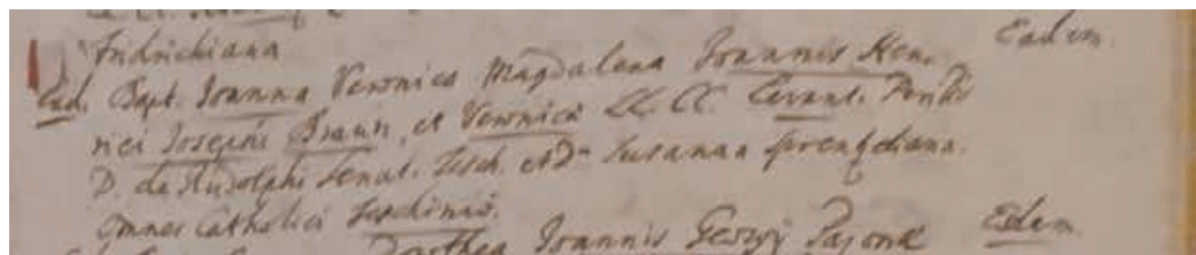 Fridrichiana
Eadem
Ead. Bapt. Joanna Veronica Magdalena Joannis Hen.
rici Josephi Braun, et Veronica CC. CC. Levant.
D. de Rudolphi Senat. Tesch. et Da Susanna
omnes Catholici Teschinii.
Dorothea Joannis Georgij Pajonk
Eadem